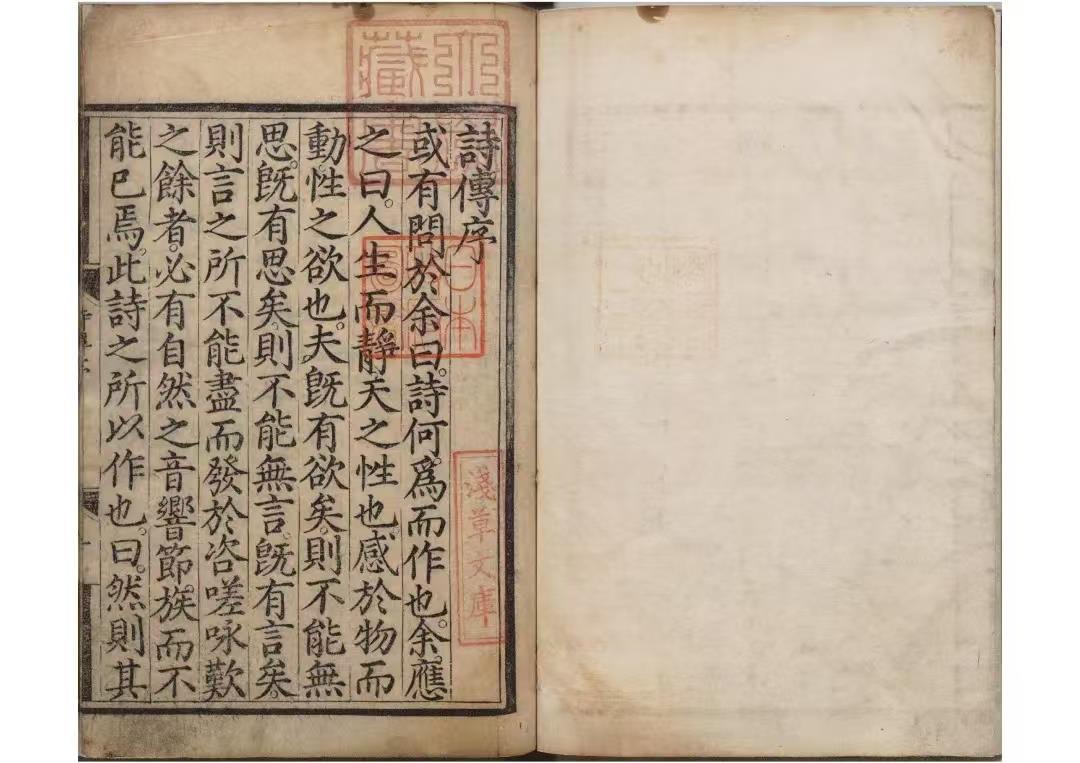 詩傳序
或有問於余曰。詩何爲而作也。余應
之曰。人生而靜天之性也。感於物而
動性之欲也。夫旣有欲矣。則不能無
思。旣有思矣。則不能無言。旣有言矣。
則言之所不能盡而發於咨嗟咏歎
之餘者。必有自然之音響節族。而不
能已焉。此詩之所以作也。曰。然則其
淺草文庫
日本